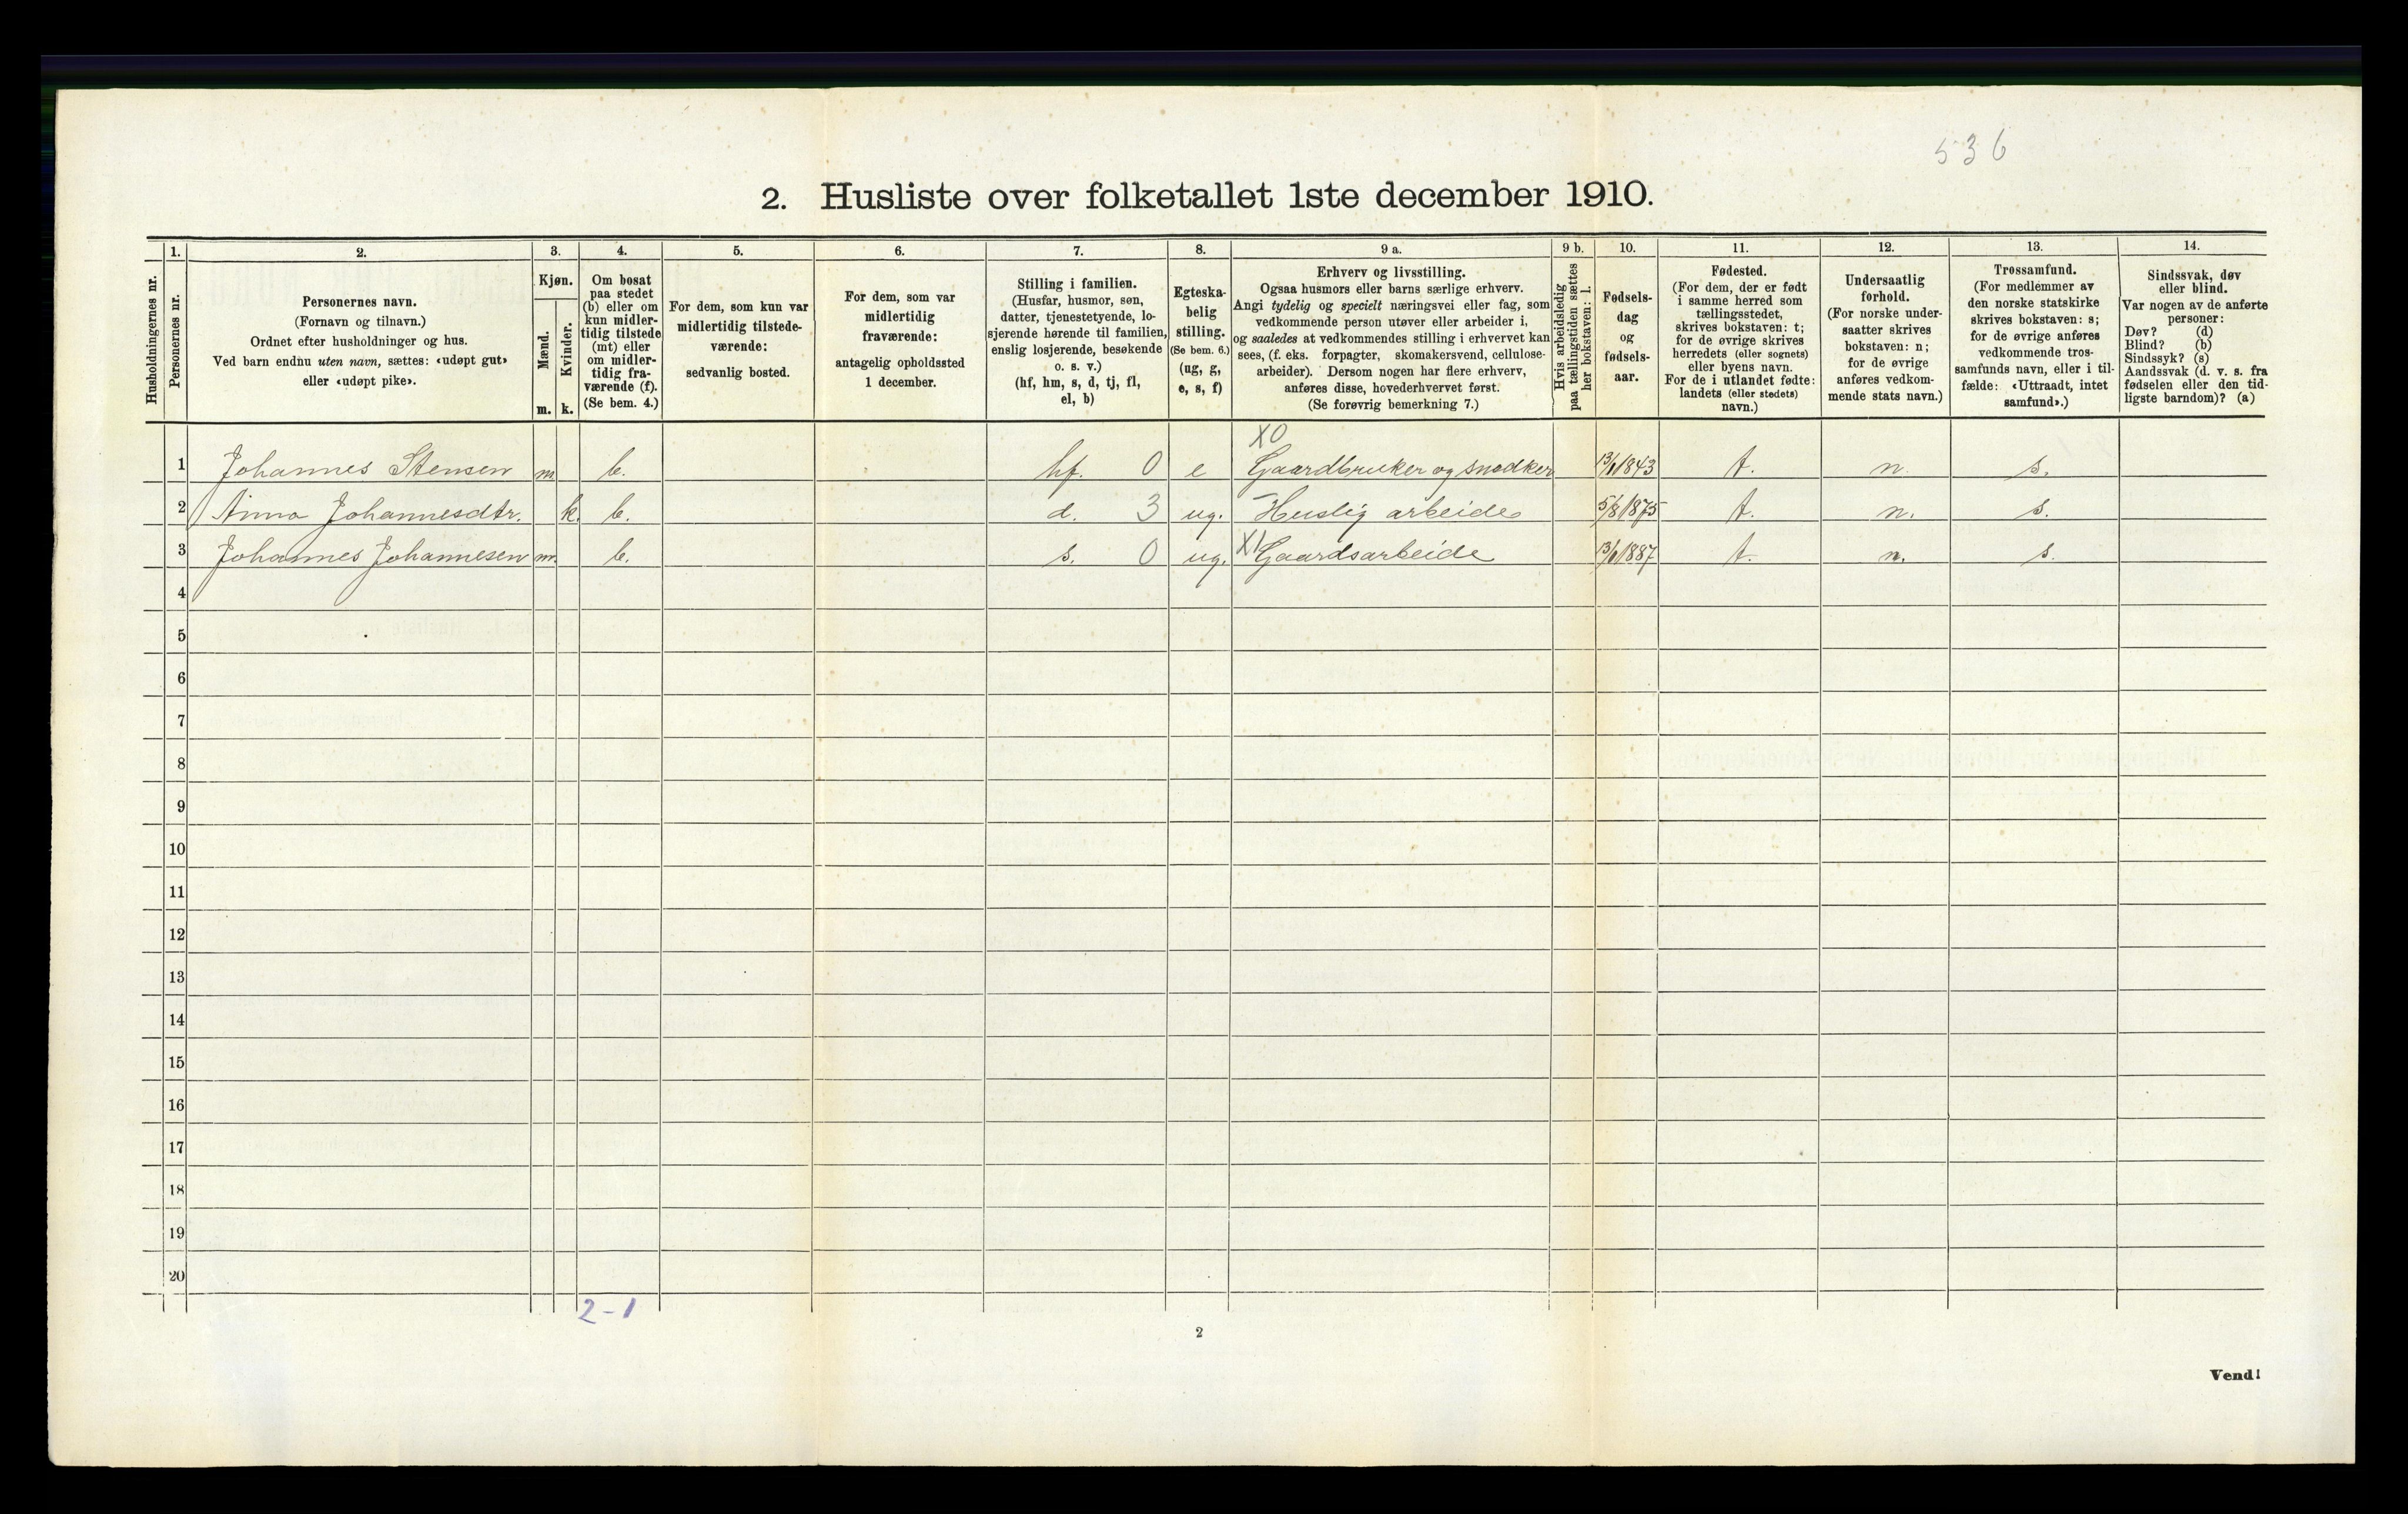 536
2. Husliste over folketallet 1ste december 1910.
1. 2. 3. 4. 5. 6. 7. 8. 9 a. 9 b. 10. 11. 12. 13. 14.
Husholdningernes nr.
Personernes nr.
Personernes navn.
(Fornavn og tilnavn.)
Ordnet efter husholdninger og hus.
Ved barn endnu uten navn, sættes: «udøpt gut»
eller «udøpt pike».
Kjøn.
Mænd.
Kvinder.
m. k.
Om bosat
paa stedet
(b) eller om
kun midler-
tidig tilstede
(mt) eller
om midler-
tidig fra-
værende (f).
(Se bem. 4.)
For dem, som kun var
midlertidig tilstede-
værende:
sedvanlig bosted.
For dem, som var
midlertidig
fraværende:
antagelig opholdssted
1 december.
Stilling i familien.
(Husfar, husmor, søn,
datter, tjenestetyende, lo-
sjerende hørende til familien,
enslig losjerende, besøkende
o. s. v.)
(hf, hm, s, d, tj, fl,
el, b)
Egteska-
belig
stilling.
(Se bem. 6.)
(ug, g,
e, s, f)
Erhverv og livsstilling.
Ogsaa husmors eller barns særlige erhverv.
Angi tydelig og specielt næringsvei eller fag, som
vedkommende person utøver eller arbeider i,
og saaledes at vedkommendes stilling i erhvervet kan
sees, (f. eks. forpagter, skomakersvend, cellulose-
arbeider). Dersom nogen har flere erhverv,
anføres disse, hovederhvervet først.
(Se forøvrig bemerkning 7.)
Hvis arbeidsledig
paa tællingstiden sættes
her bokstaven: l.
Fødsels-
dag
og
fødsels-
aar.
Fødested.
(For dem, der er født
i samme herred som
tællingsstedet,
skrives bokstaven: t;
for de øvrige skrives
herredets (eller sognets)
eller byens navn.
For de i utlandet fødte:
landets (eller stedets)
navn.)
Undersaatlig
forhold.
(For norske under-
saatter skrives
bokstaven: n;
for de øvrige
anføres vedkom-
mende stats navn.)
Trossamfund.
(For medlemmer av
den norske statskirke
skrives bokstaven: s;
for de øvrige anføres
vedkommende tros-
samfunds navn, eller i til-
fælde: «Uttraadt, intet
samfund».)
Sindssvak, døv
eller blind.
Var nogen av de anførte
personer:
Døv? (d)
Blind? (b)
Sindssyk? (s)
Aandssvak (d. v. s. fra
fødselen eller den tid-
ligste barndom)? (a)
X0
1 Johannes Stensen m b. hf. 0 e Gaardbruker og snedker 13/1 1843 t. n. s.
2 Anna Johannesdtr. k. b. d. 3 ug. Huslig arbeide 5/8 1875 t. n. s.
3 Johannes Johannesen m. b. s. 0 ug. X1 Gaardsarbeide 1887 t. n. s.
4
5
6
7
8
9
10
11
12
13
14
15
16
17
18
19
20
2-1
2
Vend!